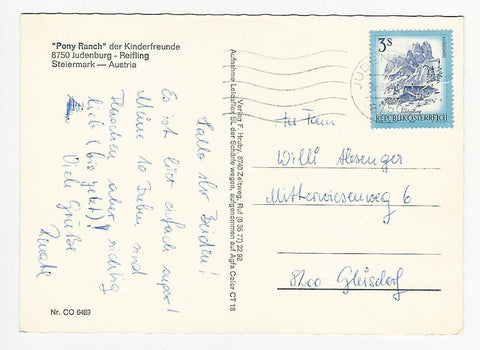 "Pony Ranch" der Kinderfreunde
8750 Judenburg - Reifling
Steiermark — Austria
Hallo ihr Beiden!
Es ist hier einfach super!
Meine 10 Buben sind
Flaschen aber richtig
lieb (bis jetzt)!
Viele Grüße
Renate
Nr. CO 6489
Verlag F. Hruby, 8740 Zeltweg, Ruf (0 35 77) 22 92
Aufnahme Leidafliet St. der Schärfe wegen, aufgenommen auf Agfa Color CT 18
3S
REPUBLIK ÖSTERREICH
An Fam
Willi Absenger
Mitterwiesenweg 6
8200 Gleisdorf